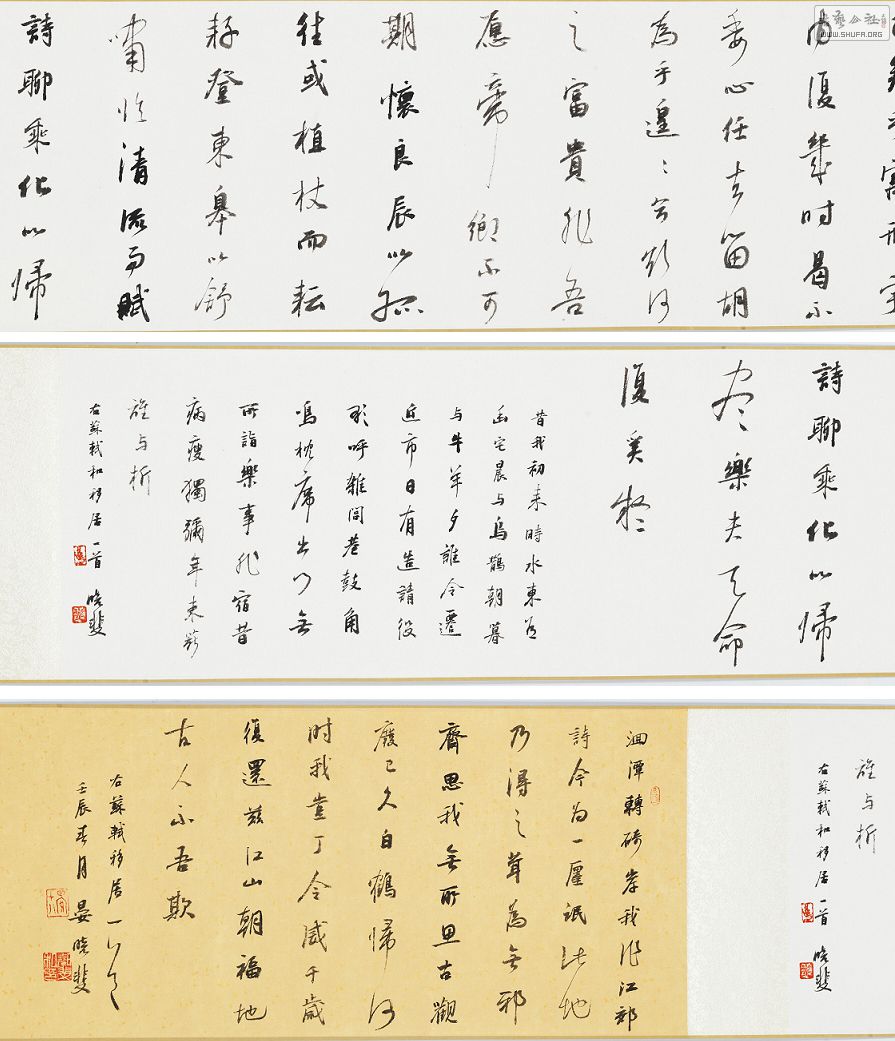 書藝公社
WWW.SHUFA.ORG
內復幾時曷不
委心任去留胡
為乎遑〻兮欲何
之富貴非吾
愿帝鄉不可
期懷良辰以孤
往或植杖而耘
耔登東皋以舒
嘯臨清流而賦
詩聊乘化以歸
詩聊乘化以歸
盡樂夫天命
復奚疑
昔我初來時水東有
幽宅晨与烏鵲朝暮
与牛羊夕誰令遷
近市日有造請役
歌呼雜閭巷鼓角
鳴枕席出門無
所詣樂事非宿昔
病瘦獨彌年束薪
誰与析
右蘇軾和移居一首 曉斐
誰与析
右蘇軾和移居一首 曉斐
洄潭轉碕岸我作江郊
詩今為一廛氓此地
乃得之葺為無邪
齋思我無所思古觀
廢已久白鶴歸何
時我豈丁令威千歲
復還茲江山朝福地
古人不吾欺
右蘇軾移居一首
壬辰春月晏曉斐